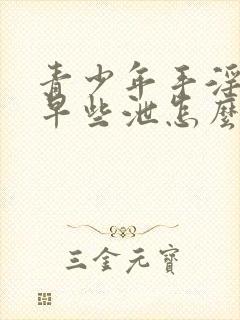 青少年手淫
早些泄怎麽
三金元寶